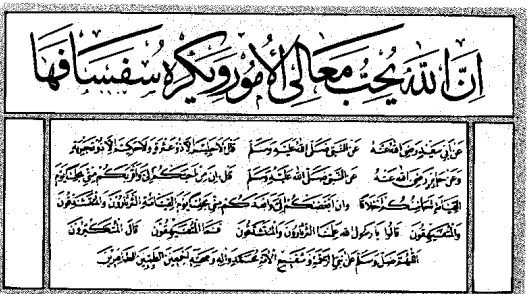 اِنَّ اللهَ يُحِبُّ مَعَالِيَ الْأُمُورِ وَيَكْرَهُ سَفْسَافَهَا
عن أبي سعيد رضي الله عنه عن النبي صلى الله عليه وسلم قال لا حليم إلا ذو عثرة ولا حكيم إلا ذو تجربة
وعن جابر رضي الله عنه عن النبي صلى الله عليه وسلم قال إن من أحبكم إلي وأقربكم مني مجلسا يوم
القيامة أحاسنكم أخلاقا وإن أبغضكم إلي وأبعدكم مني مجلسا يوم القيامة الثرثارون والمتشدقون
والمتفيهقون قالوا يا رسول الله علمنا الثرثارون والمتشدقون فما المتفيهقون قال المتكبرون
اللهم صل وسلم على نبي الرحمة وشفيع الأمة محمد وآله وصحبه أجمعين الطيبين الطاهرين